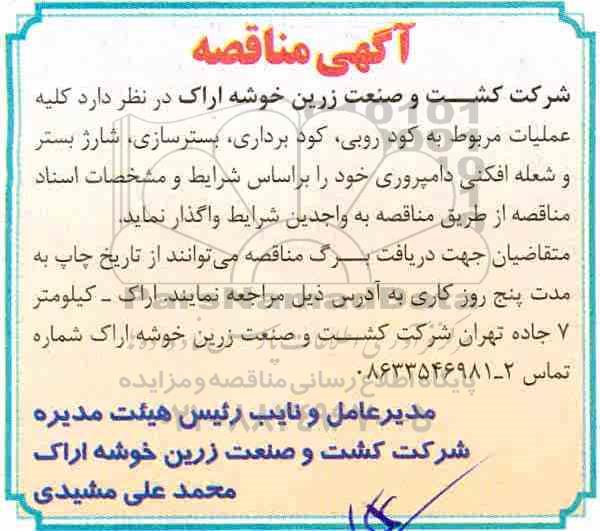 آگهی مناقصه
شرکت کشـــت و صنعت زرین خوشه اراک در نظر دارد کلیه
عملیات مربوط به کود روبی، کود برداری، بسترسازی، شارژ بستر
و شعله افکنی دامپروری خود را براساس شرایط و مشخصات اسناد
مناقصه از طریق مناقصه به واجدین شرایط واگذار نماید.
متقاضیان جهت دریافت بـــرگ مناقصه می‌توانند از تاریخ چاپ به
مدت پنج روز کاری به آدرس ذیل مراجعه نمایند. اراک ـ کیلومتر
۷ جاده تهران شرکت کشـــت و صنعت زرین خوشه اراک شماره
تماس ۲ـ۰۸۶۳۳۵۴۶۹۸۱
مدیرعامل و نایب رئیس هیئت مدیره
شرکت کشت و صنعت زرین خوشه اراک
محمد علی مشیدی
ParsNamadData
پایگاه اطلاع رسانی مناقصه و مزایده